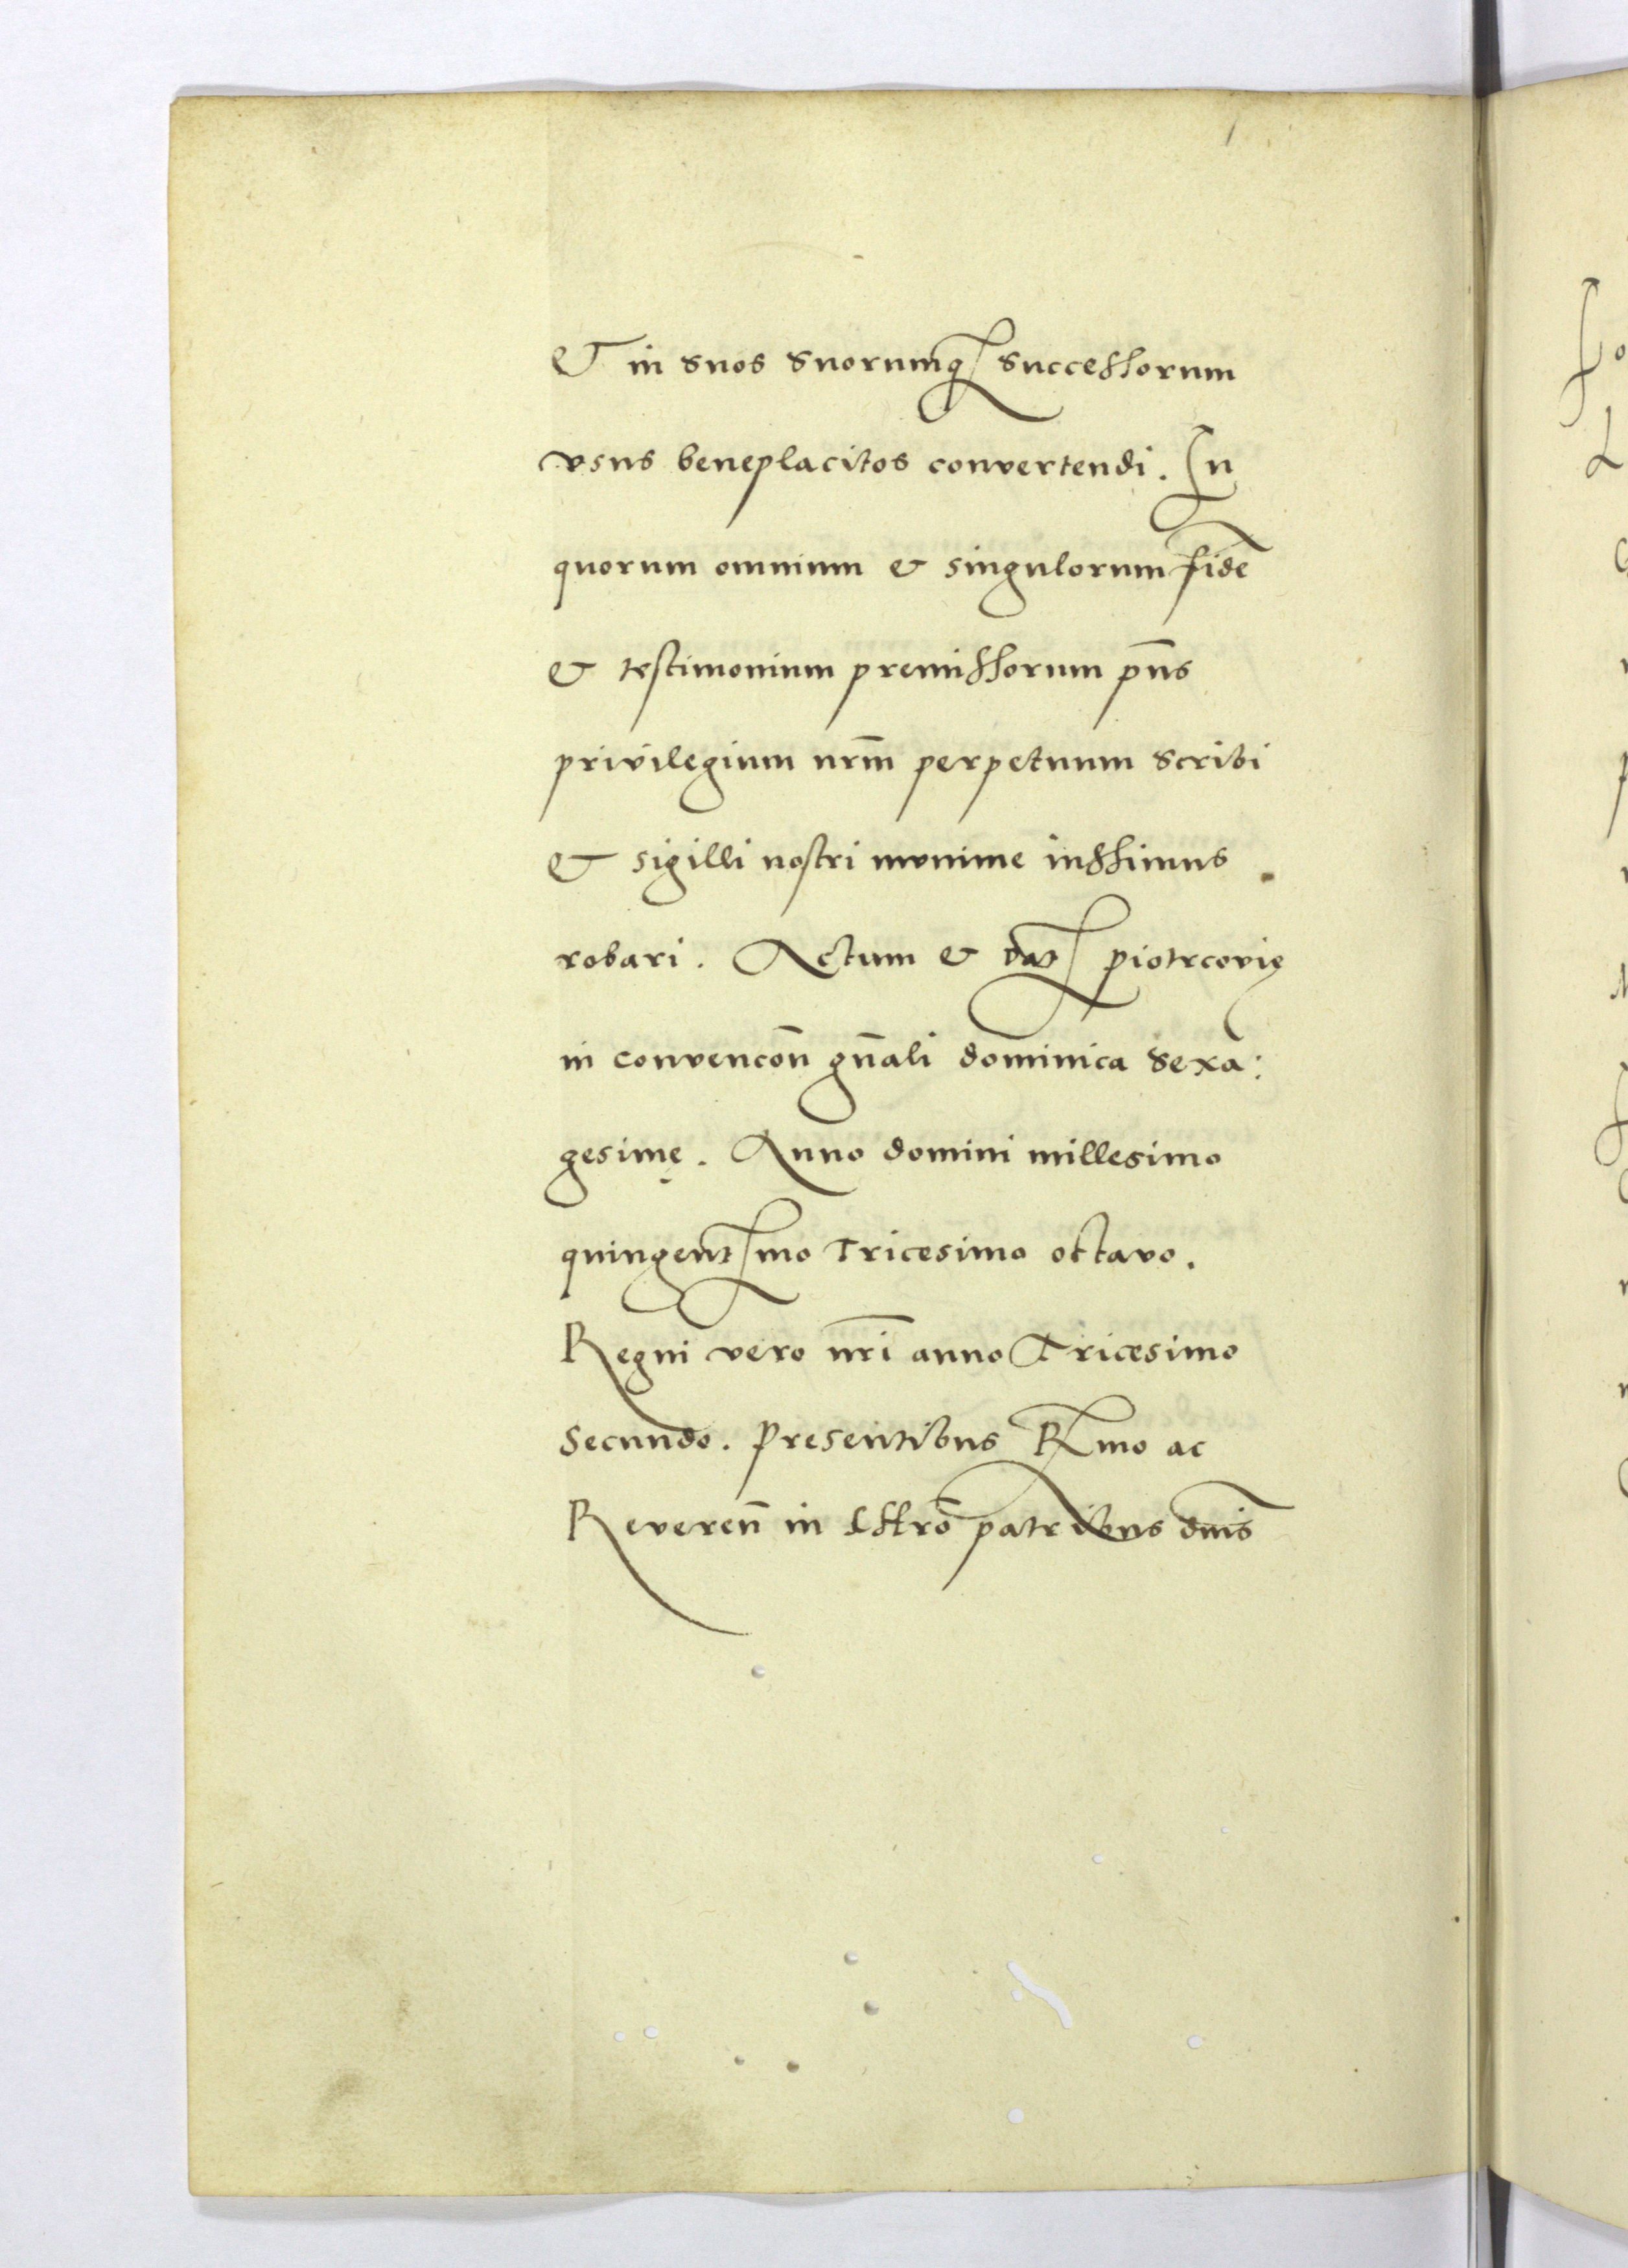 Et in suos suorumq successorum
vsus beneplacitos convertendi. In
quorum omnium & singulorum fidē
& testimonium premissorum pn̄s
privilegium nrm̄ perpetuum scribi
& sigilli nostri munime iussimus.
robari. Actum & Dat Piotrcovię
in convencōn gn̄ali dominica sexa:
gesimę. Anno domini millesimo
quingentmo Tricesimo octavo.
Regni vero nr̄i anno Tricesimo
secundo. Presentibus Rmo ac
Reveren̄ in Chrō patribus dn̄is